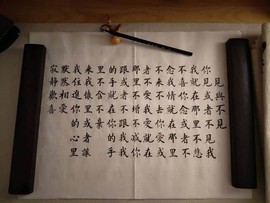 見與不見
你見或者不見我
我就在那里不悲
不喜你念或者不
念我情就在那里
不来不去你愛或
者不愛我愛就在
那里不增不減你
跟或者不跟我我
的手就在你的手
里不捨不棄
来我懷里或者讓
我住進你的心里
默然相愛
寂静歡喜